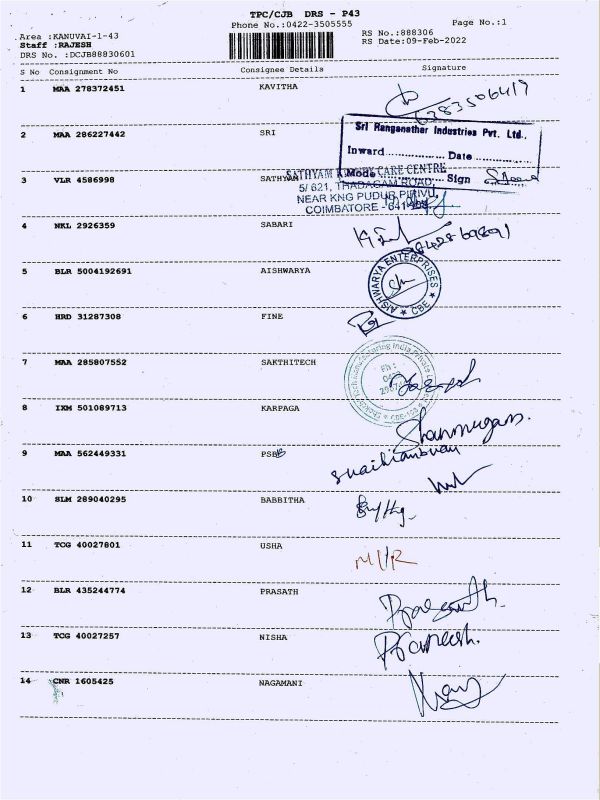 TPC/CJB DRS - P43
Phone No.:0422-3505555
Page No.:1
Area :KANUVAI-1-43
Staff :RAJESH
DRS No. :DCJB88830601
RS No.:888306
RS Date:09-Feb-2022
S No Consignment No Consignee Details Signature
1 MAA 278372451 KAVITHA
6383506419
2 MAA 286227442 SRI
Sri Ranganathar Industries Pvt. Ltd.,
Inward Date
Mode Sign
3 VLR 4586998 SATHYAM
CARE CENTRE
5/ 621, THADAGAM ROAD,
NEAR KNG PUDUR PIRIVU,
COIMBATORE - 641
4 NKL 2926359 SABARI
5 BLR 5004192691 AISHWARYA
AISHWARYA ENTERPRISES
★ CBE ★
6 HRD 31287308 FINE
7 MAA 285807552 SAKTHITECH
Ph :
8 IXM 501089713 KARPAGA
Shanmugam.
9 MAA 562449331 PSB
10 SLM 289040295 BABBITHA
11 TCG 40027801 USHA
M/R
12 BLR 435244774 PRASATH
Prasanth.
13 TCG 40027257 NISHA
Pramesh.
14 CNR 1605425 NAGAMANI